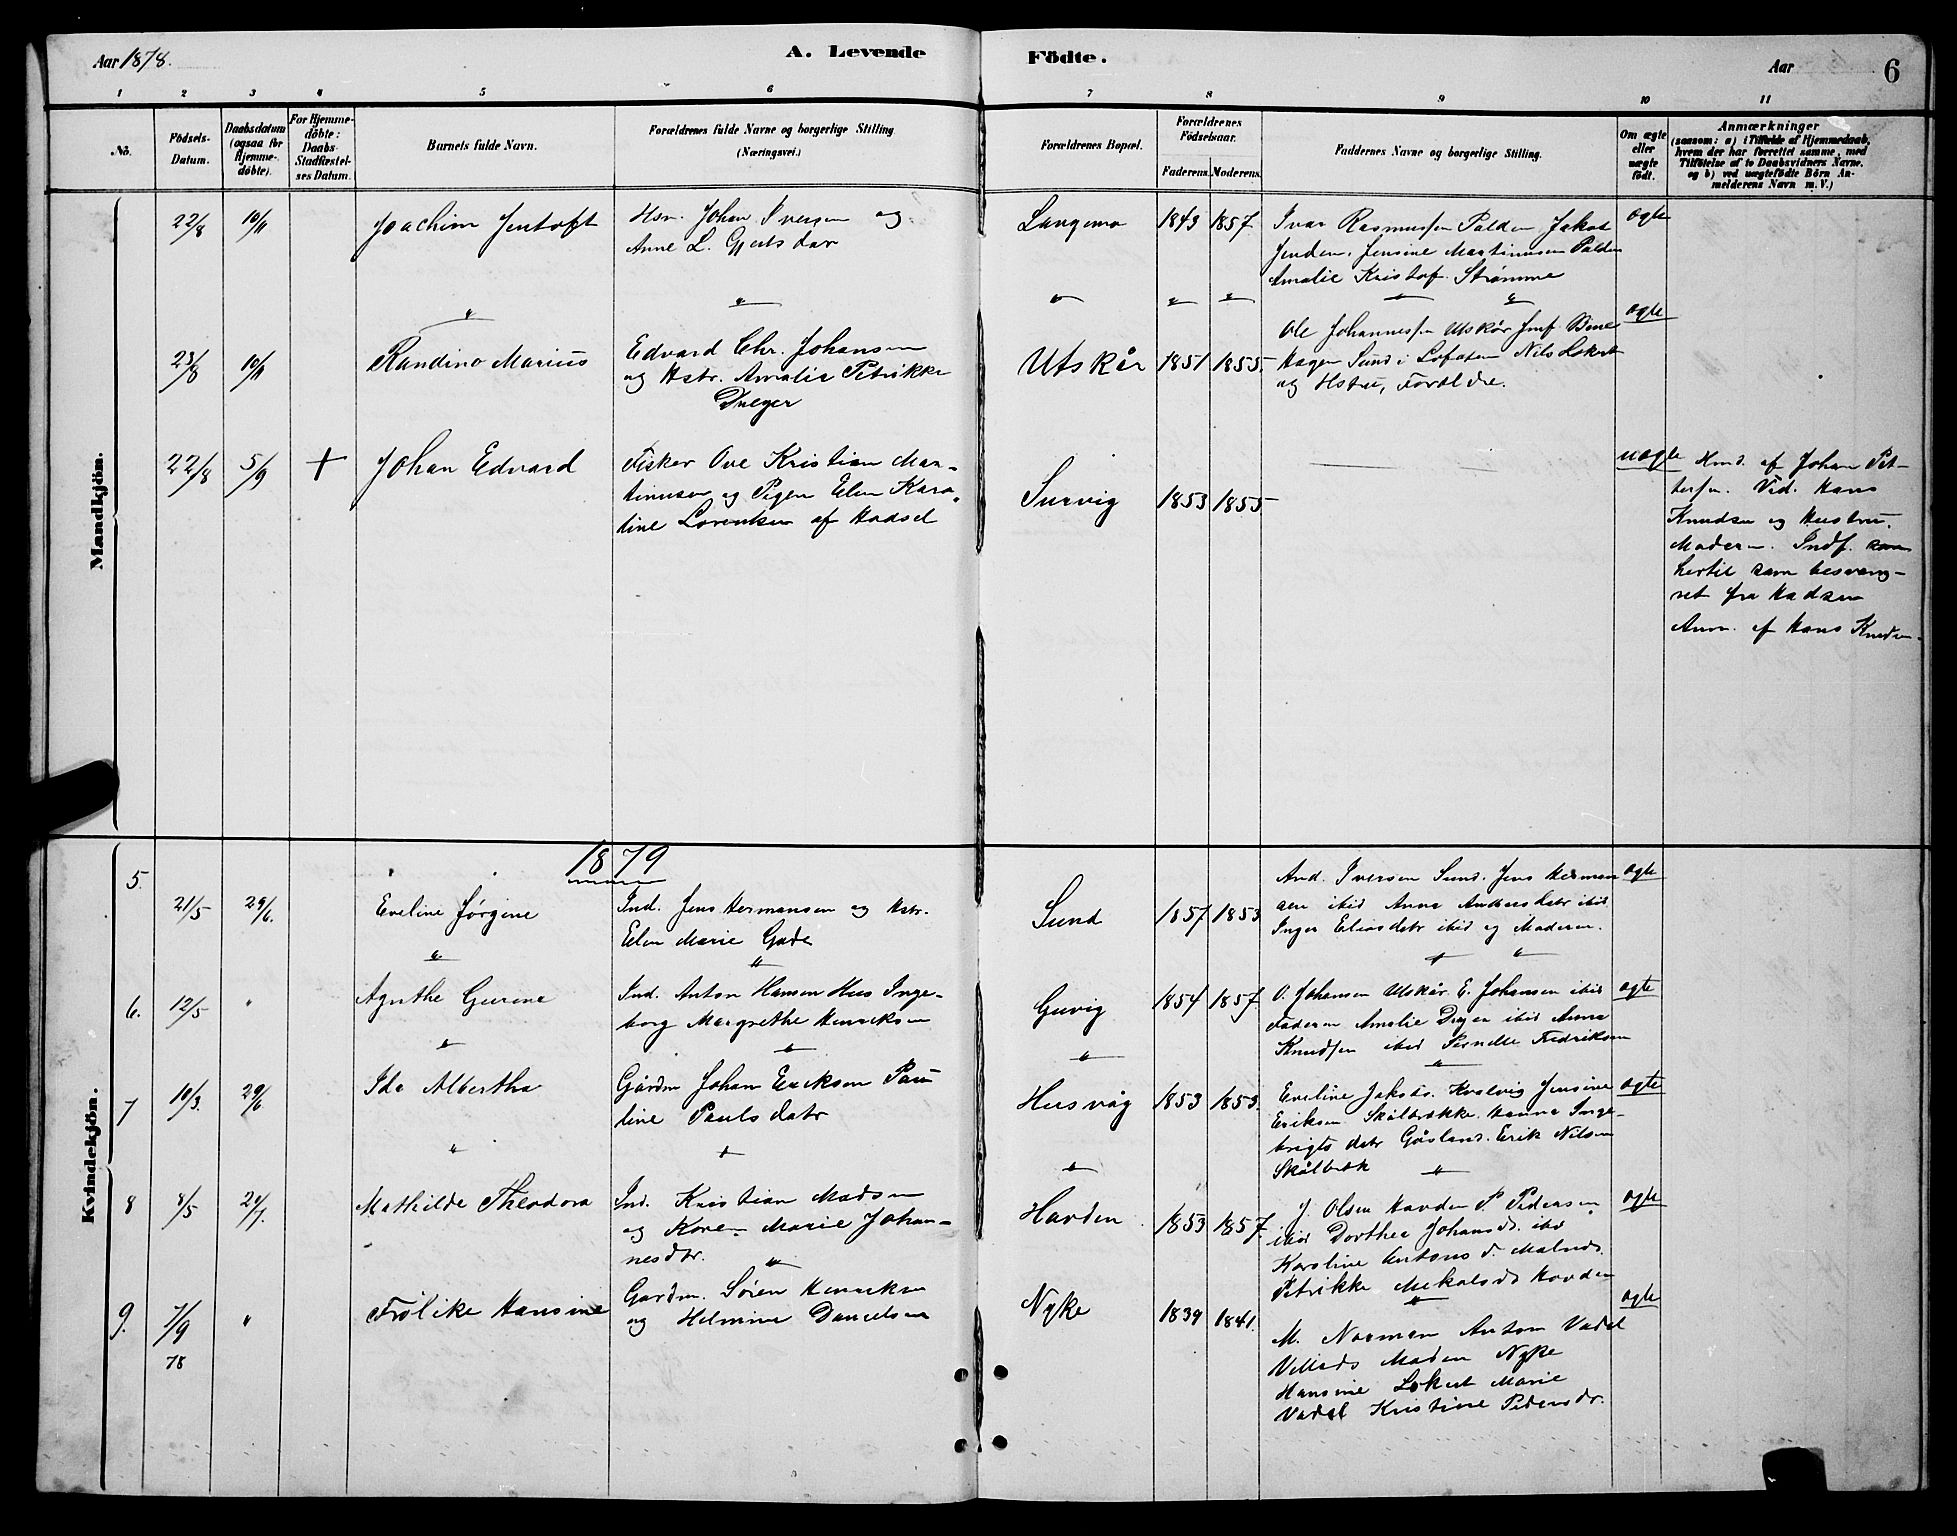 Aar 1878.
A. Levende Födte.
Aar
6
1 2 3 4 5 6 7 8 9 10 11
No.
Födsels-
Datum.
Daabsdatum
(ogsaa for
Hjemme-
döbte).
For Hjemme-
döbte:
Daabs-
Stadfæstel-
ses Datum.
Barnets fulde Navn.
Forældrenes fulde Navne og borgerlige Stilling.
(Næringsvei.)
Forældrenes Bopæl.
Forældrenes
Födselsaar.
Faderens. Moderens.
Faddernes Navne og borgerlige Stilling.
Om ægte
eller
uægte
født.
Anmærkninger
(saasom: a) i Tilfælde af Hjemmedaab,
hvem der har forrettet samme, med
Tilföielse af to Daabsvidners Navne,
og b) ved uægtefödte Börn An-
melderens Navn m. V.)
Mandkjön.
22/8 10/11 Joachim Jentoft
Hsm. Johan Iversen og
Anne L. Gjertsdar
Langemo 1843 1857
Ivar Rasmussen Palden Jakob
Jensine Martinusen Palden
Amalie Kristof. Strømme
ægte
23/8 10/11 Randino Marius
Edvard Chr. Johansen
og Hstr. Amalie Petrikke
Dreyer
Utskår 1851 1855.
Ole Johannessen Utskår Jmf Bine
Hagen Sund i Lofoten Nils Lokert
og Hstru, Forældre.
ægte
22/8 5/9 + Johan Edvard
Fisker Ove Kristian Mar-
tinusen og Pigen Elen Karo-
line Lorentsen af Hadsel
1853 1855
uægte
Hmd. af Johan Pet-
tersen. Vid. Hans
Knudsen og Hustru.
Moderen. Indf.
hertil som besvang-
ret fra Hadsel
Anm. af Hans Knudsen
Kvindekjön.
1879
5. 21/5 29/6. Eveline Jørgine
Ind. Jens Hermansen og Hstr.
Elen Marie Gade
Sund 1857 1853
And. Iversen Sund. Jens Herman
sen ibid Anna Andersdatr ibid
Inger Eliasdatr ibid og Moderen.
ægte
6. 12/5 " Agnthe Gurine
Ind. Anton Hansen Hus Inge-
borg Margrethe Henriksen
Guvig 1854 1857.
O. Johansen Utskår. E. Johansen ibid
Faderen Amalie Dreyer ibid Anna
Knudsen ibid Pernelle Fedriksen
ægte
7 10/3. 29/6 Ida Albertha
Gårdm Johan Eriksen Pau
line Paulsdatr
Husvåg 1853 1853.
Eveline Jakobs. Kvalvig Jensine
Eriksen Skålbrække. Hanna Inge-
brigts datr Gåsland. Erik Nilsen
Skålbrek
ægte
8 8/5 24/7. Mathilde Theodora
Ind. Kristian Madsen
og Karen Marie Johan-
nesdtr.
Havden 1853 1857.
J. Olsen Havden P. Pedersen
ibid Dorthea Johansd. ibid
Karoline Antons d. Malnes.
Petrikke Mekalsd. Hovden
ægte
9. 7/9 78 " Frolike Hansine
Gardm. Søren Henriksen
og Helmine Danielsen
Nyke 1839 1841.
M. Norman Anton Vadel
Villads Madsen Nyke
Hansine Lokert Marie
Vadel Kristine Pedersdr.
ægte